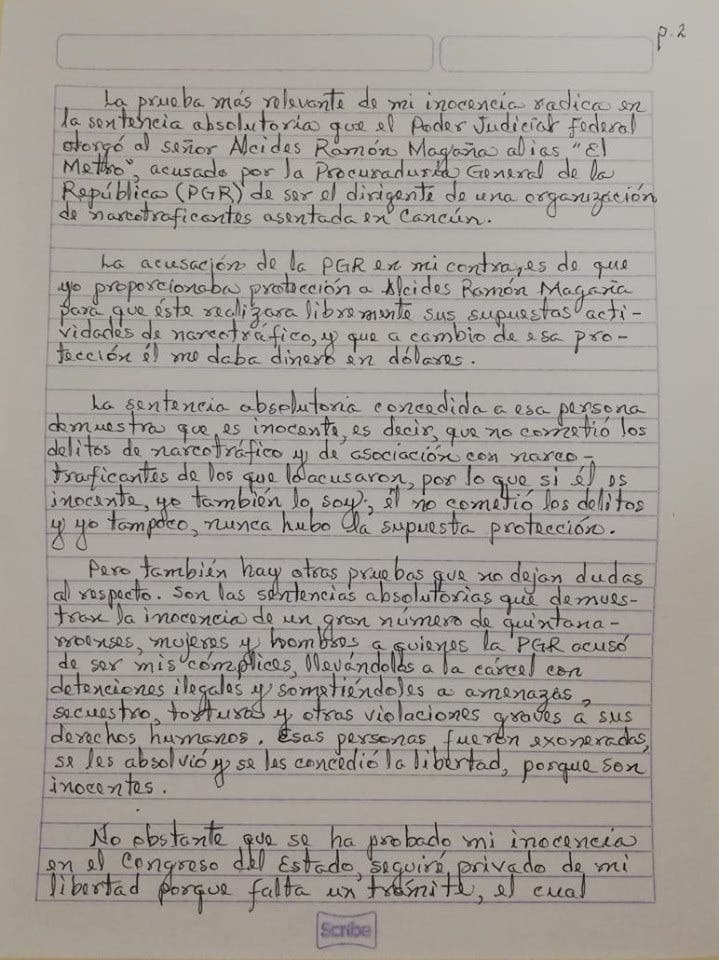 p. 2
La prueba más relevante de mi inocencia radica en
la sentencia absolutoria que el Poder Judicial Federal
otorgó al señor Alcides Ramón Magaña alias "El
Metro", acusado por la Procuraduría General de la
República (PGR) de ser el dirigente de una organización
de narcotraficantes asentada en Cancún.
La acusación de la PGR en mi contra, es de que
yo proporcionaba protección a Alcides Ramón Magaña
para que éste realizara libremente sus supuestas acti-
vidades de narcotráfico, y que a cambio de esa pro-
tección él me daba dinero en dólares.
La sentencia absolutoria concedida a esa persona
demuestra que es inocente, es decir, que no cometió los
delitos de narcotráfico y de asociación con narco-
traficantes de los que lo acusaron, por lo que si él es
inocente, yo también lo soy; él no cometió los delitos
y yo tampoco, nunca hubo la supuesta protección.
Pero también hay otras pruebas que no dejan dudas
al respecto. Son las sentencias absolutorias que demues-
tran la inocencia de un gran número de quintana-
rroenses, mujeres y hombres a quienes la PGR acusó
de ser mis cómplices, llevándoles a la cárcel con
detenciones ilegales y sometiéndoles a amenazas,
secuestro, torturas y otras violaciones graves a sus
derechos humanos. Esas personas fueron exoneradas,
se les absolvió y se les concedió la libertad, porque son
inocentes.
No obstante que se ha probado mi inocencia
en el Congreso del Estado, seguiré privado de mi
libertad porque falta un trámite, el cual
Scribe